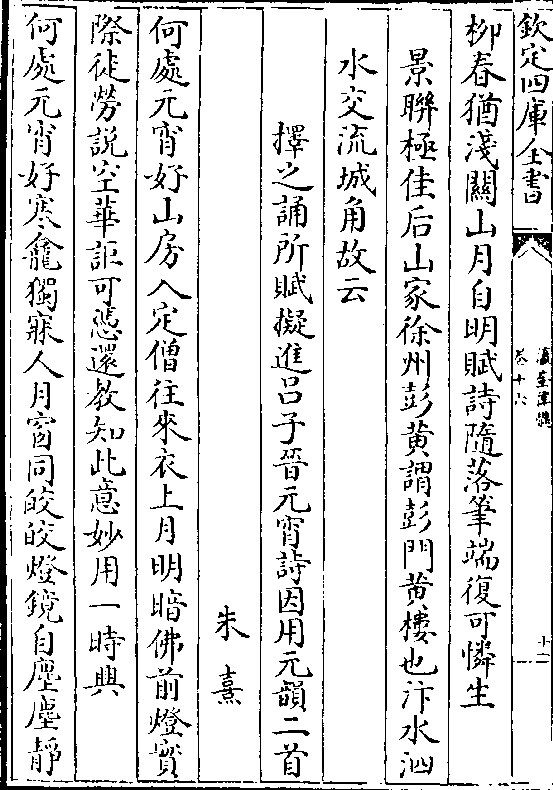 欽定四庫全書
瀛奎律髓
卷十六
十二
柳春猶淺關山月自明賦詩隨落筆端復可憐生
景聯極佳后山家徐州彭黄謂彭門黄樓也汴水泗
水交流城角故云
擇之誦所賦擬進呂子晉元宵詩因用元韻二首
朱熹
何處元宵好山房入定僧往來衣上月明暗佛前燈實
際徒勞説空華詎可憑還教知此意妙用一時興
何處元宵好寒龕獨寐人月窗同皎皎燈鏡自塵塵靜